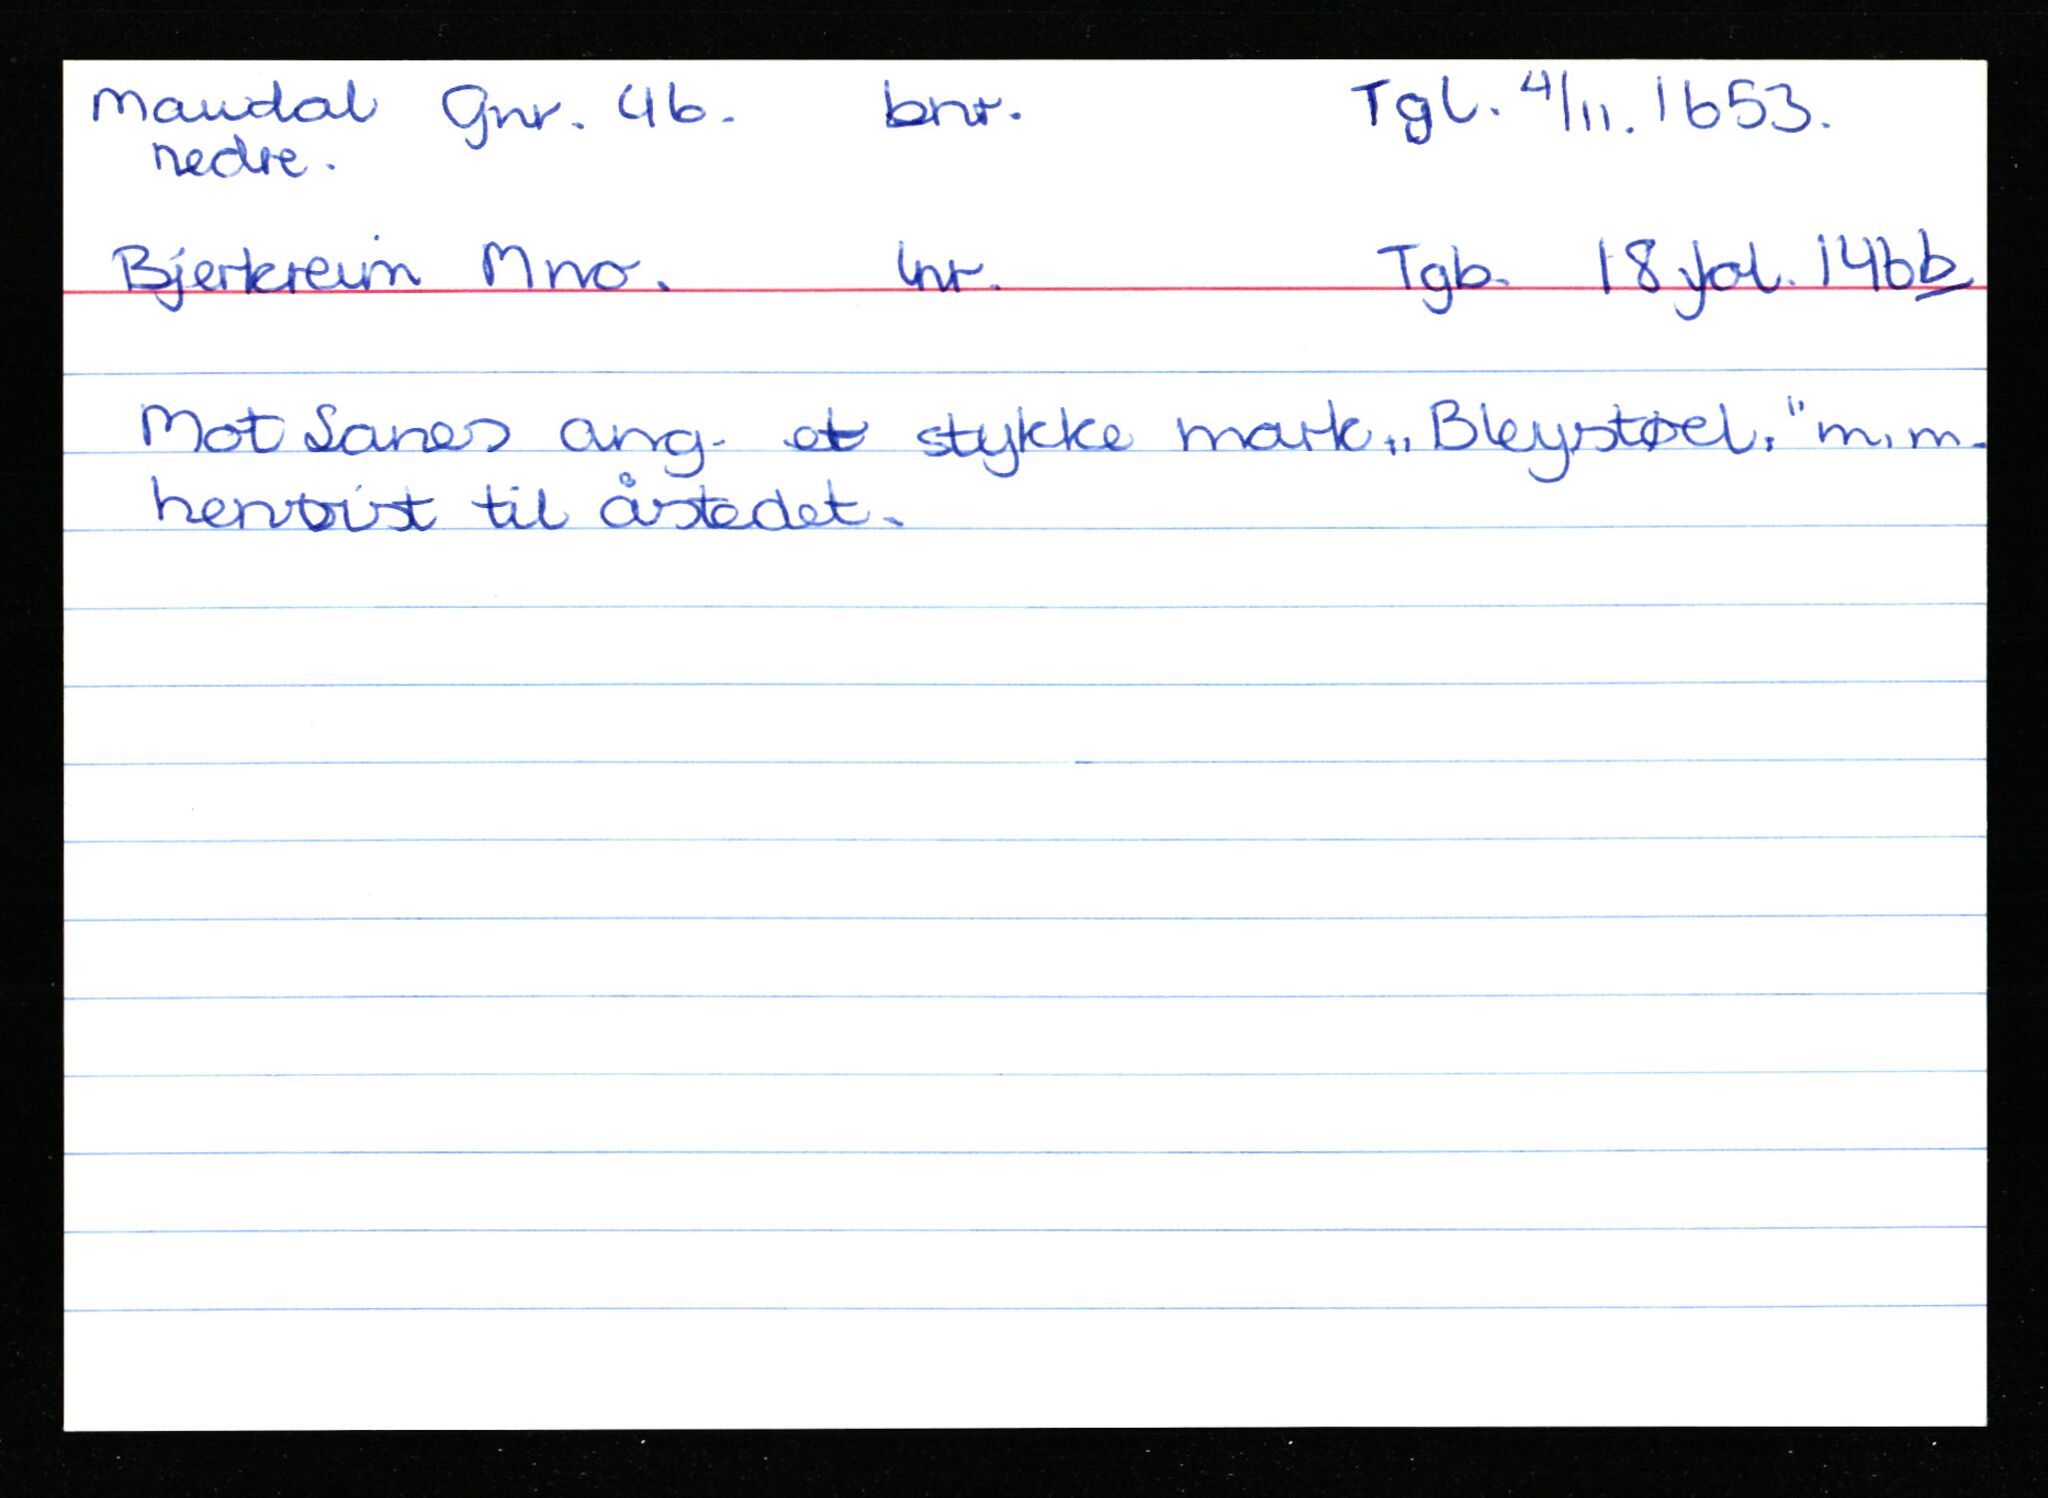 Maudal Gnr. 46. bnr. Tgl. 4/11. 1653.
nedre.
Bjerkreim Mno. lnr. Tgb. 18 fol. 146b
Mot Sanes ang. et stykke mark „Bleystøel." m.m.
henvist til åstedet.